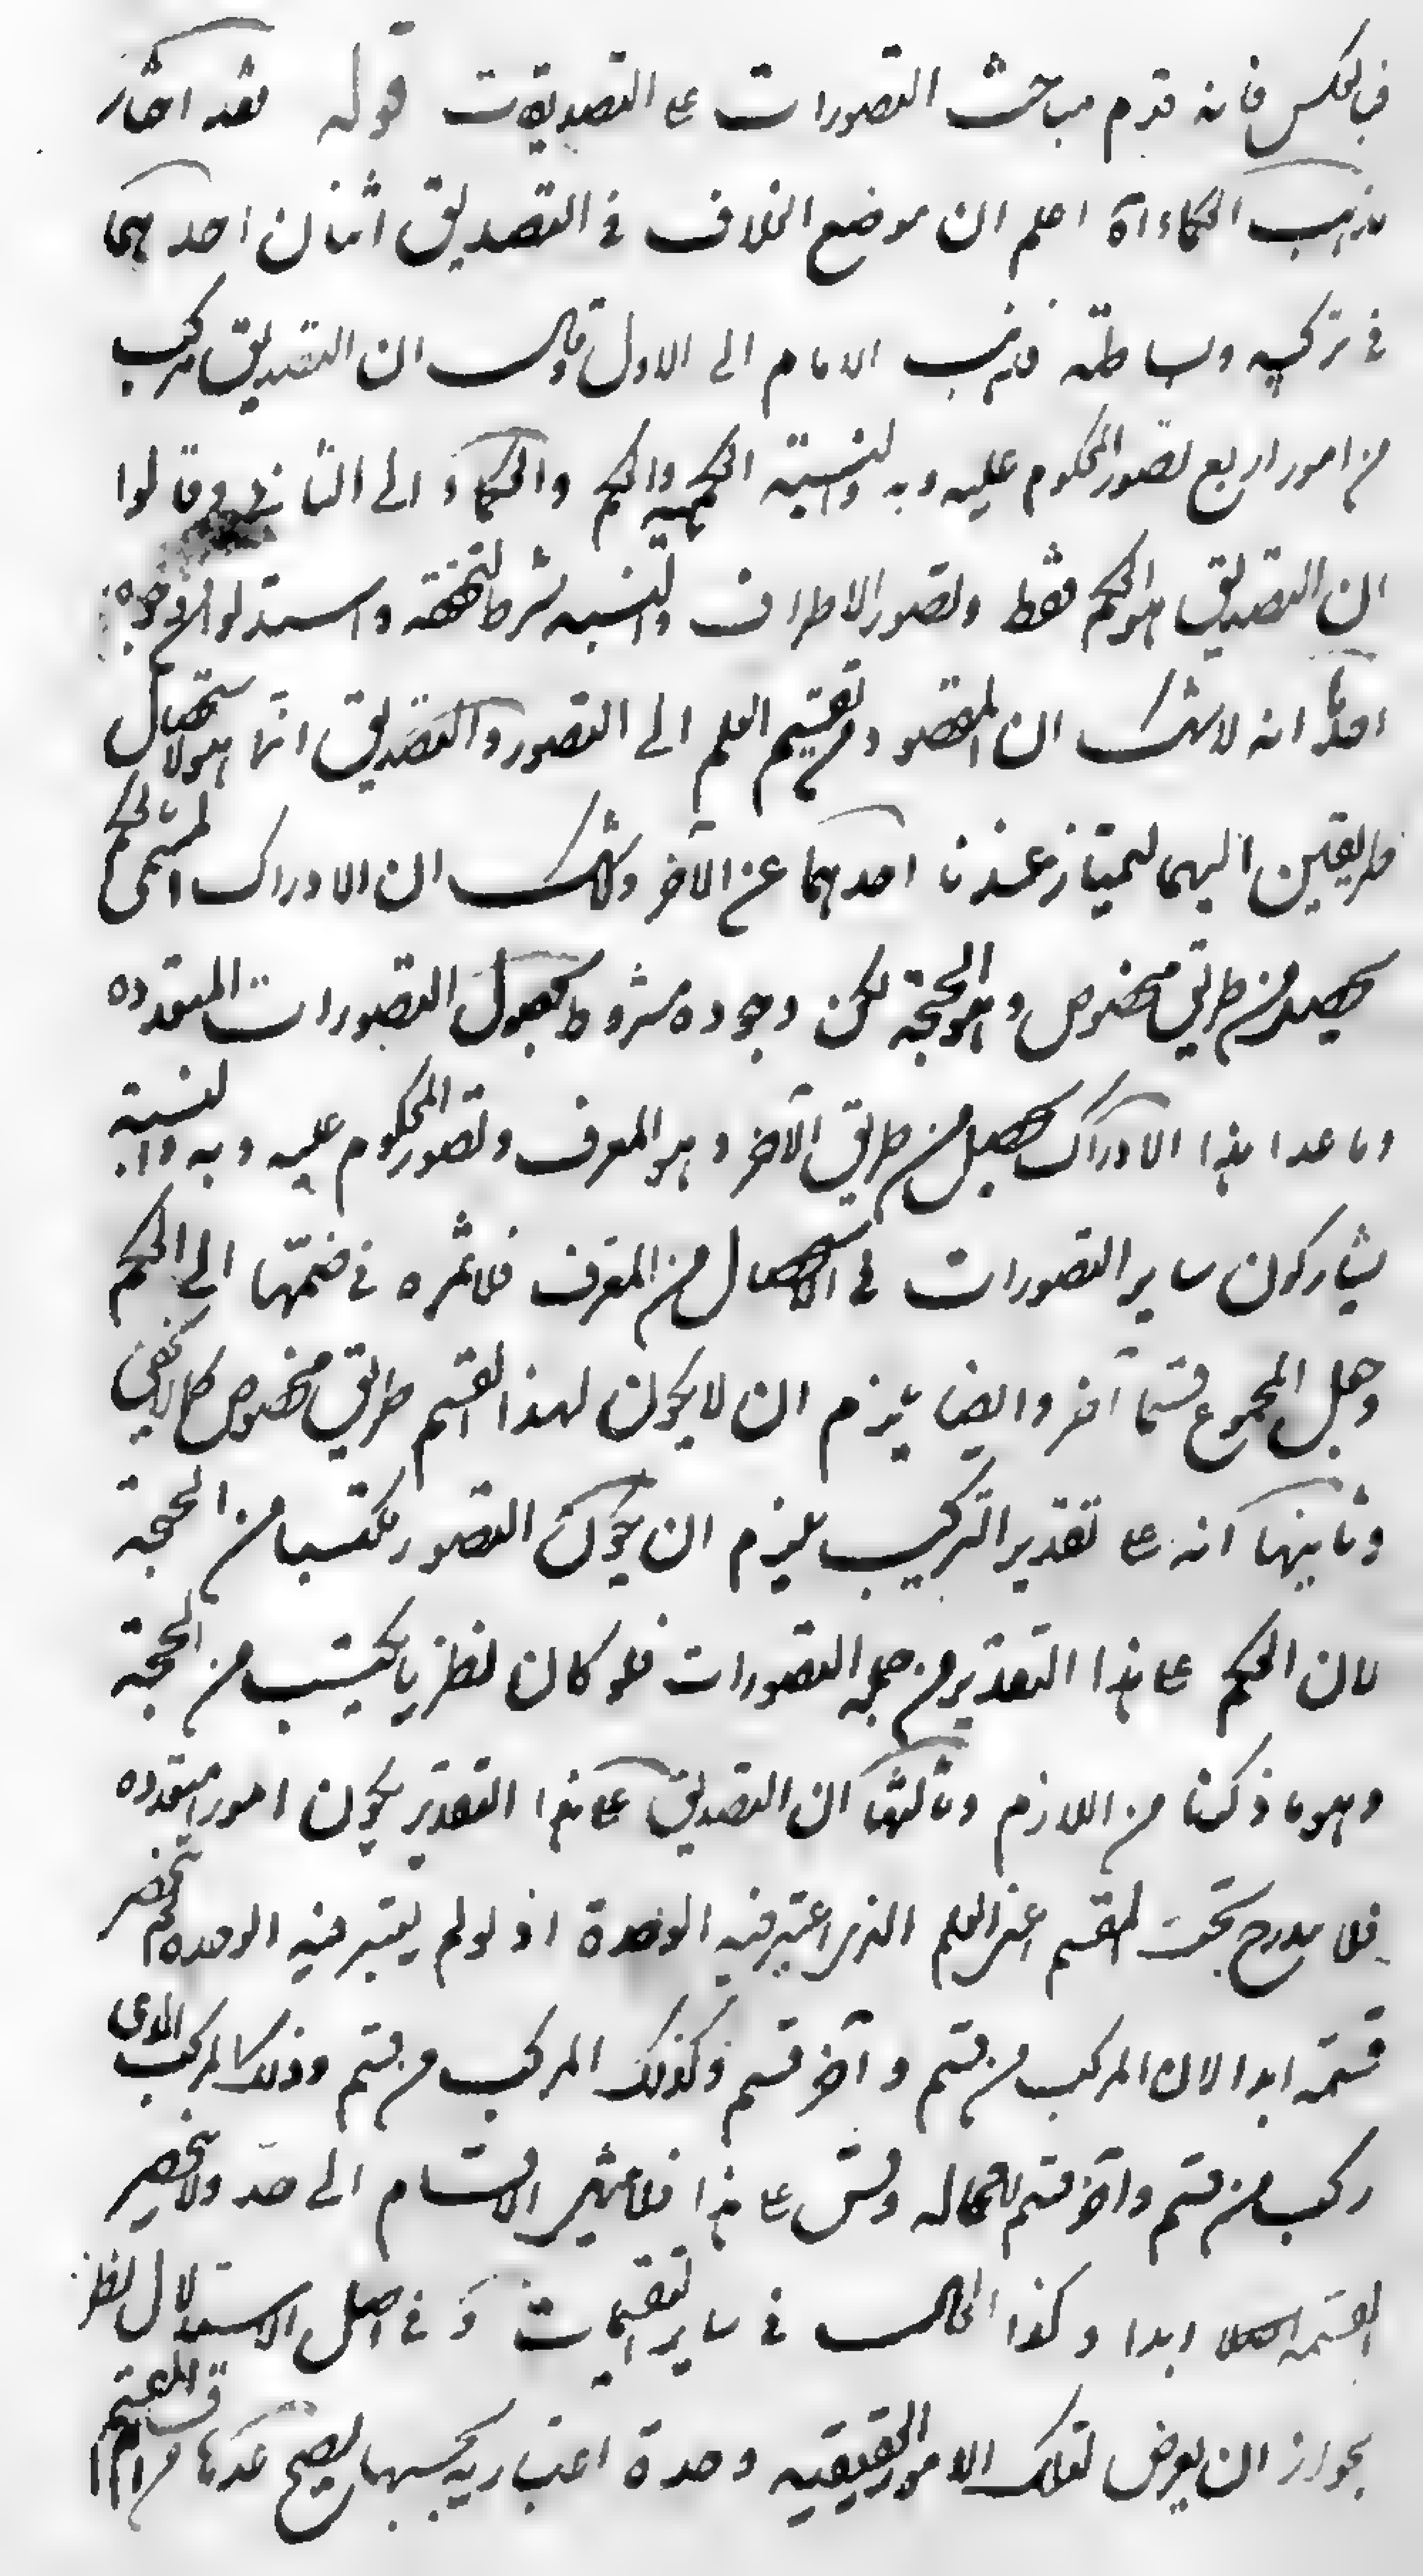 فبالعكس فانه قدم مباحث التصورات على التصديقات قوله فقد اختار
مذهب الحكماء آه اعلم ان موضع الخلاف في التصديق اثنان احدهما
في تركيبه وبساطته فذهب الامام الى الاول وقال ان التصديق مركب
من امور اربع تصور المحكوم عليه وبه والنسبة الحكمية والحكم والحكماء الى الثاني وقالوا
ان التصديق هو الحكم فقط وتصور الاطراف والنسبة شرط لتحققه واستدلوا بوجوه
احدها انه لا شك ان المقصود من تقسيم العلم الى التصور والتصديق انما هو لاستحصال
طريقين اليهما ليمتاز عندنا احدهما عن الآخر ولا شك ان الادراك المسمى بالحكم
يحصل من طريق مخصوص وهو الحجة لكن وجوده مشروط بحصول التصورات المتعدده
وما عدا هذا الادراك يحصل من طريق الآخر وهو المعرف وتصور المحكوم عليه وبه والنسبة
يشاركون ساير التصورات في الاستحصال من المعرف فلا ثمره في ضمها الى الحكم
وجعل المجموع قسما آخر وايضا يلزم ان لا يكون لهذا القسم طريق مخصوص كما لا يخفى
وثانيها انه على تقدير التركيب يلزم ان يكون التصور مكتسبا من الحجة
لان الحكم على هذا التقدير من جملة التصورات فلو كان نظريا يكتسب من الحجة
وهو ما ذكرنا من اللازم وثالثها ان التصديق على هذا التقدير يكون امورا متعدده
فلا يندرج تحت المقسم اعني العلم الذي اعتبر فيه الوحدة اذ لو لم يعتبر فيه الوحده لم تنحصر
قسمته ابدا لان المركب من قسم وآخر قسم وكذلك المركب من قسم وذلك المركب الذي
ركب من قسم وآخر قسم لا محالة وقس على هذا فلا ينتهي الاقسام الى حد ولا ينحصر
القسمة ابدا وكذا الحال في ساير التقسيمات وفي اصل الاستدلال نظر
بجواز ان يعرض لتلك الامور الحقيقيه وحدة اعتباريه بحسبها يصح عدها من اقسام المقسم